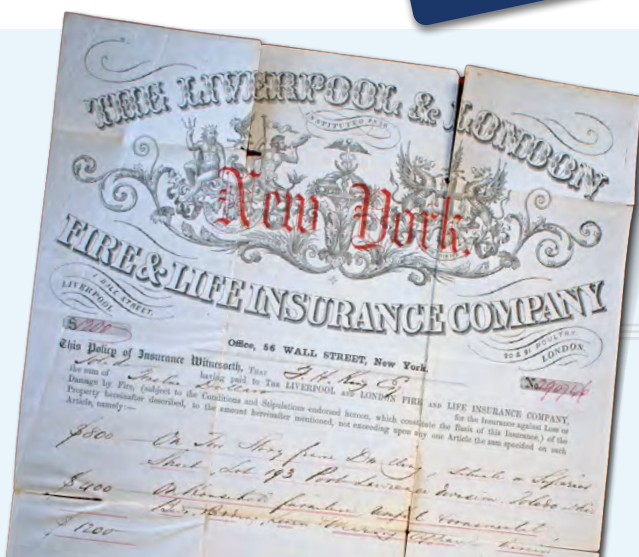 THE LIVERPOOL & LONDON
INSTITUTED 1836
New York.
FIRE & LIFE INSURANCE COMPANY
1 DALE STREET, LIVERPOOL.
20 & 21 POULTRY, LONDON.
$1200
Office, 56 WALL STREET, New York.
This Policy of Insurance Witnesseth, THAT
the sum of having paid to THE LIVERPOOL AND LONDON FIRE AND LIFE INSURANCE COMPANY,
for the Insurance against Loss or
Damage by Fire, (subject to the Conditions and Stipulations endorsed hereon, which constitute the Basis of this Insurance,) of the
Property hereinafter described, to the amount hereafter mentioned, not exceeding upon any one Article the sum specified on such
Article, namely:—
$800 On Two Story frame Dwelling situate on
Street Lot 193 Port Lawrence Division Toledo Ohio
$400 On Household furniture useful & ornamental
$1200